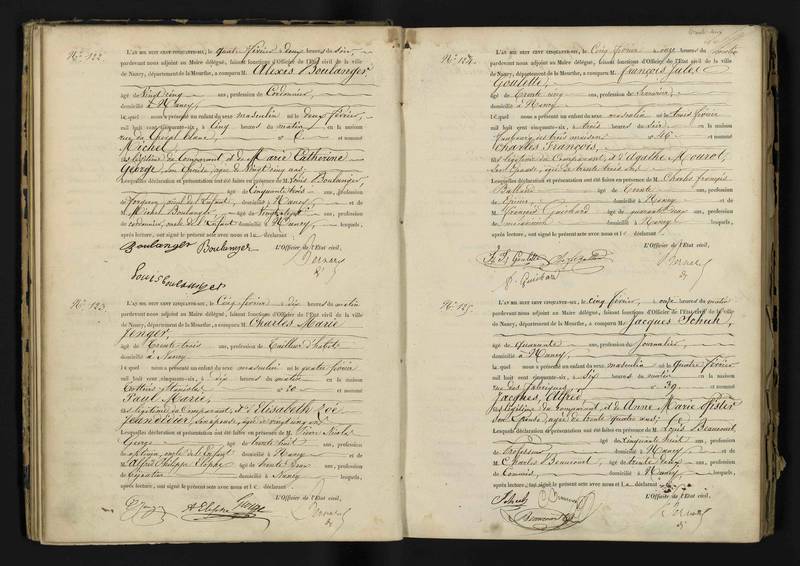 N° 122.
L'AN MIL HUIT CENT CINQUANTE-SIX, le quatre février à deux heures du soir,
pardevant nous adjoint au Maire délégué, faisant fonctions d'Officier de l'État civil de la ville
de Nancy, département de la Meurthe, a comparu M. Alexis Boulanger,
âgé de Vingt cinq ans, profession de Cordonnier,
domicilié à Nancy,
lequel nous a présenté un enfant du sexe masculin né le deux février,
mil huit cent cinquante-six, à cinq heures du matin en la maison
rue du Cheval blanc, n° 6 et nommé
Michel,
fils légitime du Comparant et de Marie Catherine
George, son Épouse, âgée de Vingt cinq ans;
Lesquelles déclaration et présentation ont été faites en présence de M. Louis Boulanger,
âgé de Cinquante trois ans, profession
de forgeron, aïeul de l'Enfant, domicilié à Nancy et de
M. Michel Boulanger âgé de Vingt Sept ans, profession
de cordonnier, oncle de l'Enfant domicilié à Nancy, lesquels,
après lecture, ont signé le présent acte avec nous et le déclarant
Boulanger Boulanger
L'Officier de l'État civil,
Louis Boulanger
N° 123.
L'AN MIL HUIT CENT CINQUANTE-SIX, le Cinq février à dix heures du matin
pardevant nous adjoint au Maire délégué, faisant fonctions d'Officier de l'État civil de la ville
de Nancy, département de la Meurthe, a comparu M. Charles Marie
âgé de Trente-trois ans, profession de Tailleur d'habits
domicilié à Nancy
lequel nous a présenté un enfant du sexe masculin né le quatre février
mil huit cent cinquante-six, à dix heures du matin en la maison
n° 20 et nommé
Paul Marie,
fils légitime du Comparant, et d'Élisabeth Zoé
son épouse, âgée de vingt cinq ans
Lesquelles déclaration et présentation ont été faites en présence de M. Pierre Nicolas
George âgé de trente huit ans, profession
de oncle de l'Enfant domicilié à Nancy et de
M. Alfred Philippe âgé de trente deux ans, profession
de domicilié à Nancy lesquels,
après lecture, ont signé le présent acte avec nous et le déclarant
L'Officier de l'État civil,
George
N° 124.
L'AN MIL HUIT CENT CINQUANTE-SIX, le Cinq février à onze heures du
pardevant nous adjoint au Maire délégué, faisant fonctions d'Officier de l'État civil de la ville
de Nancy, département de la Meurthe, a comparu M. François Jules
Goulette,
âgé de Trente cinq ans, profession de Serrurier,
domicilié à Nancy
lequel nous a présenté un enfant du sexe masculin né le trois février
mil huit cent cinquante-six, à trois heures du soir en la maison
faubourg des trois maisons n° 46 et nommé
Charles François,
fils légitime du Comparant, et d'Agathe
son Épouse, âgée de trente trois ans
Lesquelles déclaration et présentation ont été faites en présence de M. Charles François
âgé de Trente ans, profession
domicilié à Nancy et de
M. François âgé de quarante ans, profession
domicilié à Nancy lesquels,
après lecture, ont signé le présent acte avec nous et le déclarant
L'Officier de l'État civil,
Goulette
N° 125.
L'AN MIL HUIT CENT CINQUANTE-SIX, le cinq février, à onze heures du matin
pardevant nous adjoint au Maire délégué, faisant fonctions d'Officier de l'État civil de la ville
de Nancy, département de la Meurthe, a comparu M. Jacques Schuh,
âgé de quarante ans, profession de Journalier,
domicilié à Nancy,
lequel nous a présenté un enfant du sexe masculin né le quatre février
mil huit cent cinquante-six, à six heures du matin en la maison
rue des fabriques, n° 39 et nommé
Jacques, Alfred,
fils légitime du Comparant et de Anne Marie Pfister
son Épouse, âgée de trente quatre ans;
Lesquelles déclaration et présentation ont été faites en présence de M. Louis Beaucourt,
âgé de Cinquante huit ans, profession
de Professeur domicilié à Nancy et de
M. Charles Beaucourt, âgé de trente cinq ans, profession
de Commis, domicilié à Nancy, lesquels,
après lecture, ont signé le présent acte avec nous et le déclarant
L'Officier de l'État civil,
Schuh